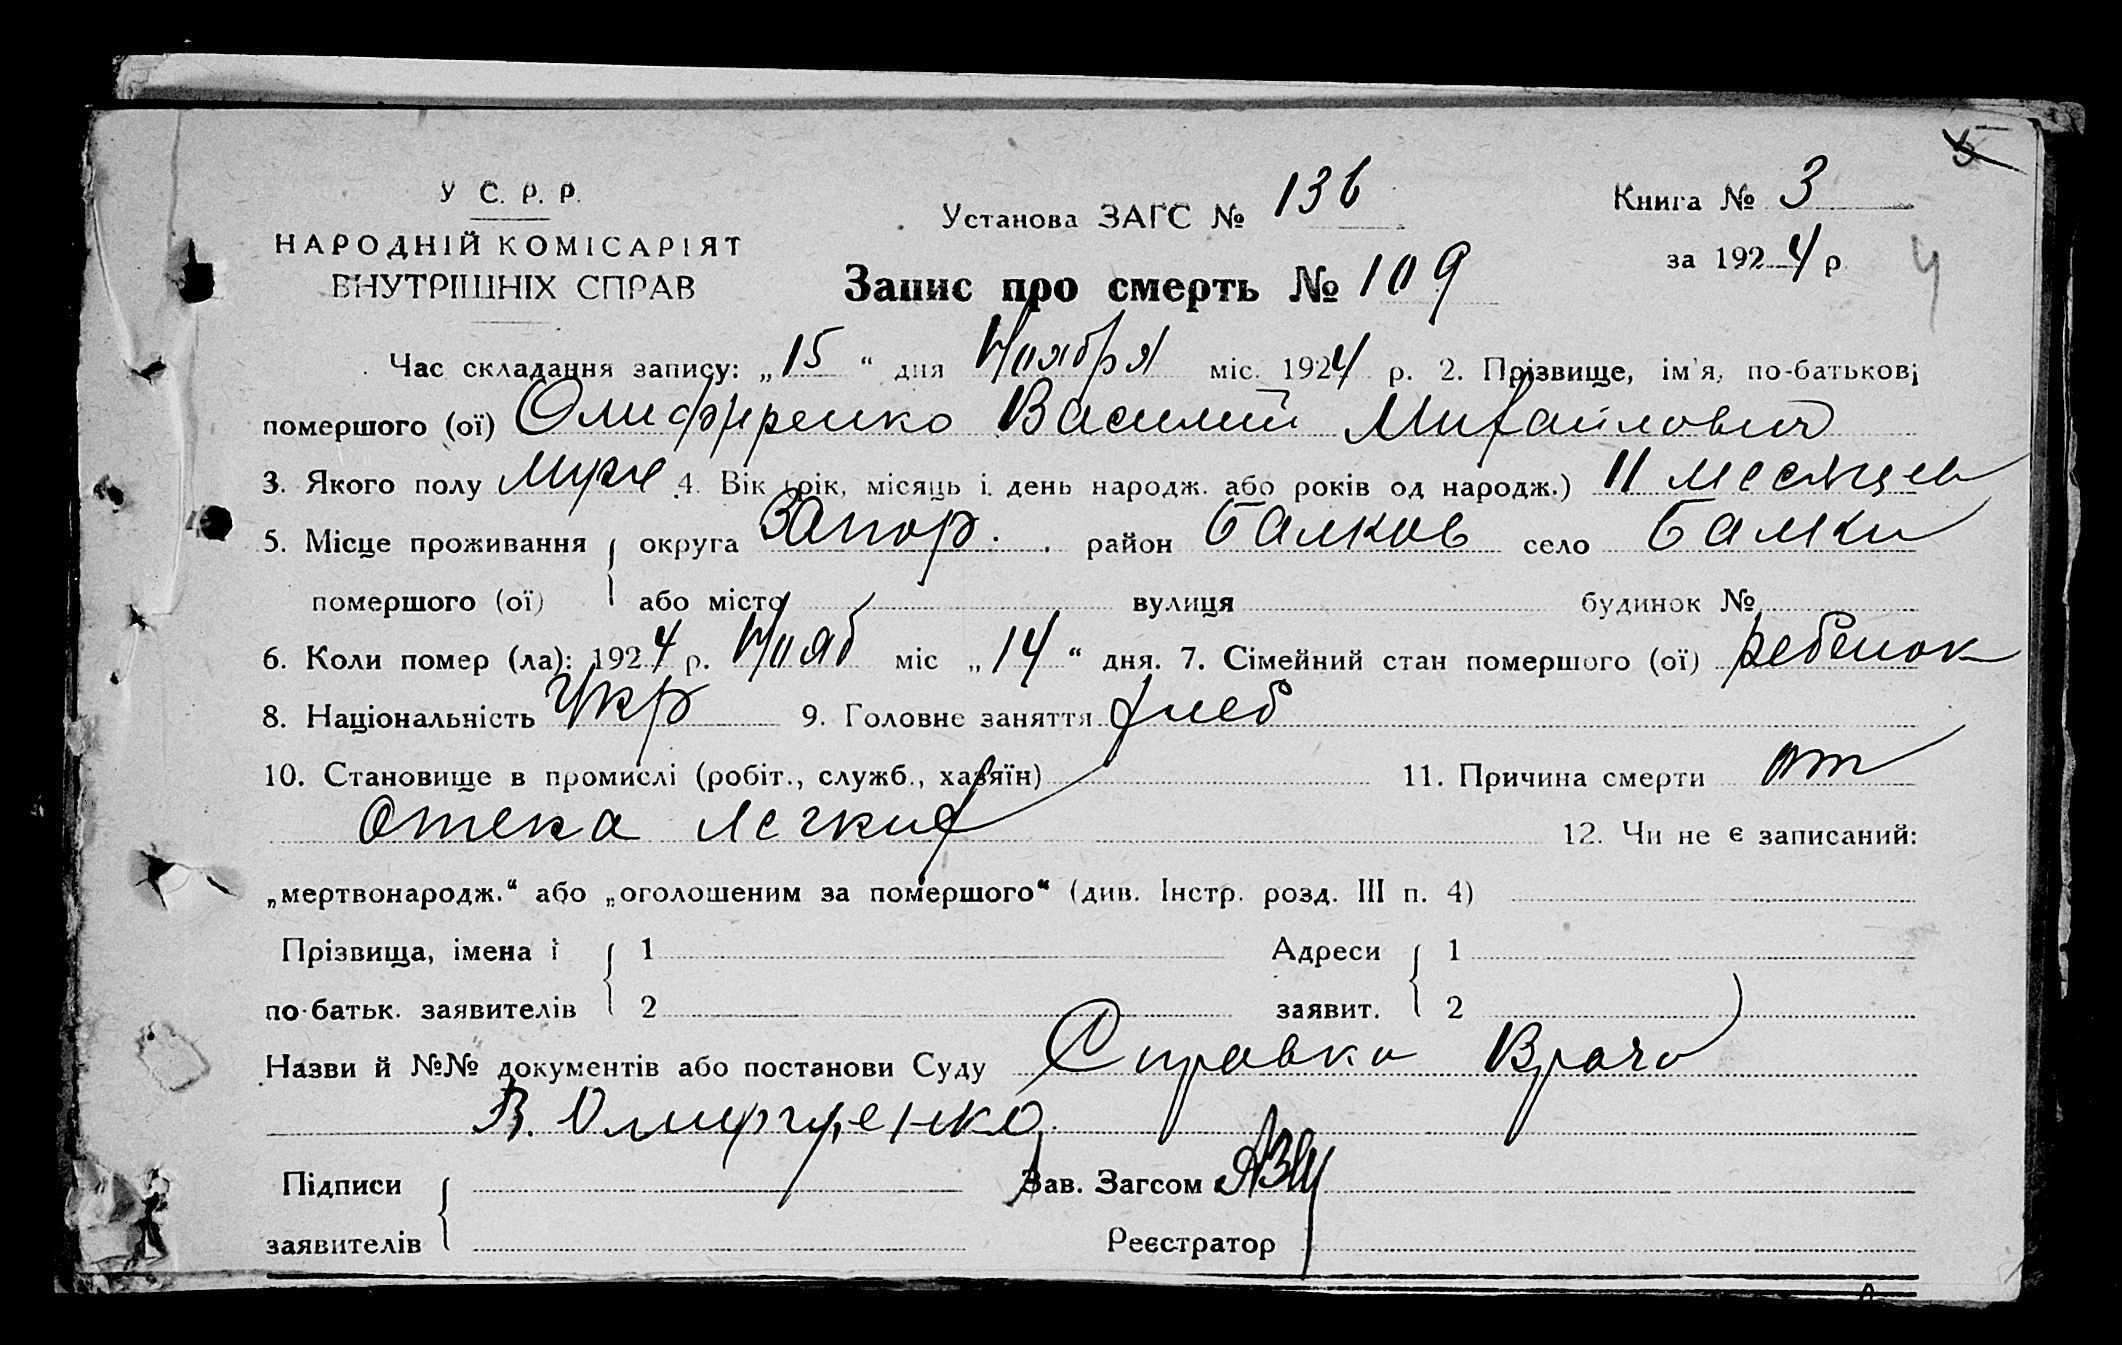 У С. Р. Р.
НАРОДНІЙ КОМІСАРІЯТ
ВНУТРІШНІХ СПРАВ
Установа ЗАГС № 136
Книга № 3
за 1924 р
4
Запис про смерть № 109
Час складання запису: „15“ дня Ноября міс. 1924 р. 2. Прізвище, ім'я, по-батькові
помершого (ої) Олифиренко Василий Михайлович
3. Якого полу муж 4. Вік (рік, місяць і день народж. або років од народж.) 11 месяцев
5. Місце проживання { округа Запор. район Балков село Балки
помершого (ої) або місто вулиця будинок №
6. Коли помер (ла): 1924 р. Нояб міс „14“ дня. 7. Сімейний стан помершого (ої) ребенок
8. Національність Укр 9. Головне заняття хлеб
10. Становище в промислі (робіт., служб., хазяїн) 11. Причина смерти от
отека легких 12. Чи не є записаний:
„мертвонародж.“ або „оголошеним за помершого“ (див. Інстр. розд. III п. 4)
Прізвища, імена і { 1 Адреси { 1
по-батьк. заявителів 2 заявит. 2
Назви й №№ документів або постанови Суду Справка Врача
В. Олифиренко
Підписи { Зав. Загсом
заявителів Реєстратор